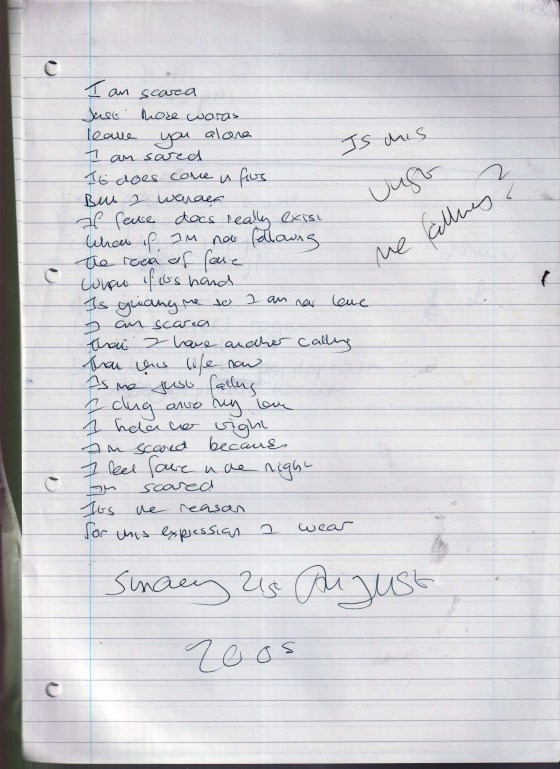 I am scared
Just those words
leave you alone
I am scared
It does come in fits
But I wonder
If fate does really exist
What if I'm not following
the road of fate
What if its hand
Is guiding me so I am not late
I am scared
that I have another calling
that this life now
Is me just falling
I cling onto my love
I hold her tight
I'm scared because
I feel fate in the night
I'm scared
Its the reason
for this expression I wear
Is this
Just
me falling?
Sunday 21st August
2005